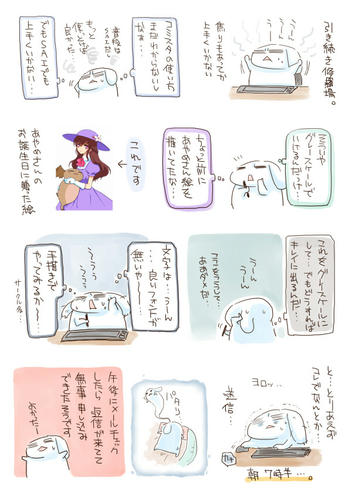 引き続き修羅場。
うーん
うーん
焦りもあってか
上手くいかない…
コミスタの使い方
まだわからないし
なぁ…
普段は
SAIだな
もっと
使っとけば
良かった…
でもSAIでも
上手くいかない…
グレースケールで
いけるんだっけ…
ちょっと前に
あやめさん絵を
描いてたな…
これです
あやめさんの
お誕生日に贈った絵
これをグレースケールに
して…でもどうすれば
キレイに出るんだ…
うーん
うーん
ここをこうして
ああダメだ…
文字は…うーん
…良いフォントが
無いや〜…
うーん
うーん
手描きで
やってみるか〜…
サークル名…
と…とりあえず
コレでなんとか
ヨロッ…
送信…
カチ
朝7時半…。
パタリ
午後にメールチェック
したら返信が来てて
無事申し込み
できたそうです
よかった…